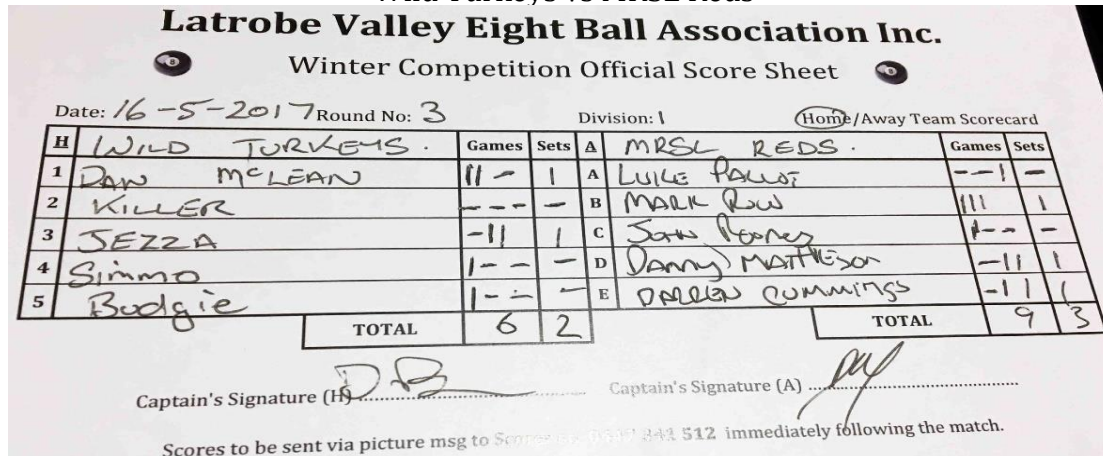 Wild Turkeys vs MRSL Reds
Latrobe Valley Eight Ball Association Inc.
Winter Competition Official Score Sheet
Date: 16-5-2017 Round No: 3 Division: 1 Home/Away Team Scorecard
H WILD TURKEYS. Games Sets A MRSL REDS. Games Sets
1 DAN McLEAN 11- 1 A LUKE --1 -
2 KILLER --- - B MARK ROW 111 1
3 JEZZA -11 1 C 1-- -
4 Simmo 1-- - D DANNY MATTHESON -11 1
5 Budgie 1-- - E DARREN CUMMINGS -11 1
TOTAL 6 2 TOTAL 9 3
Captain's Signature (H) Captain's Signature (A)
Scores to be sent via picture msg to 512 immediately following the match.